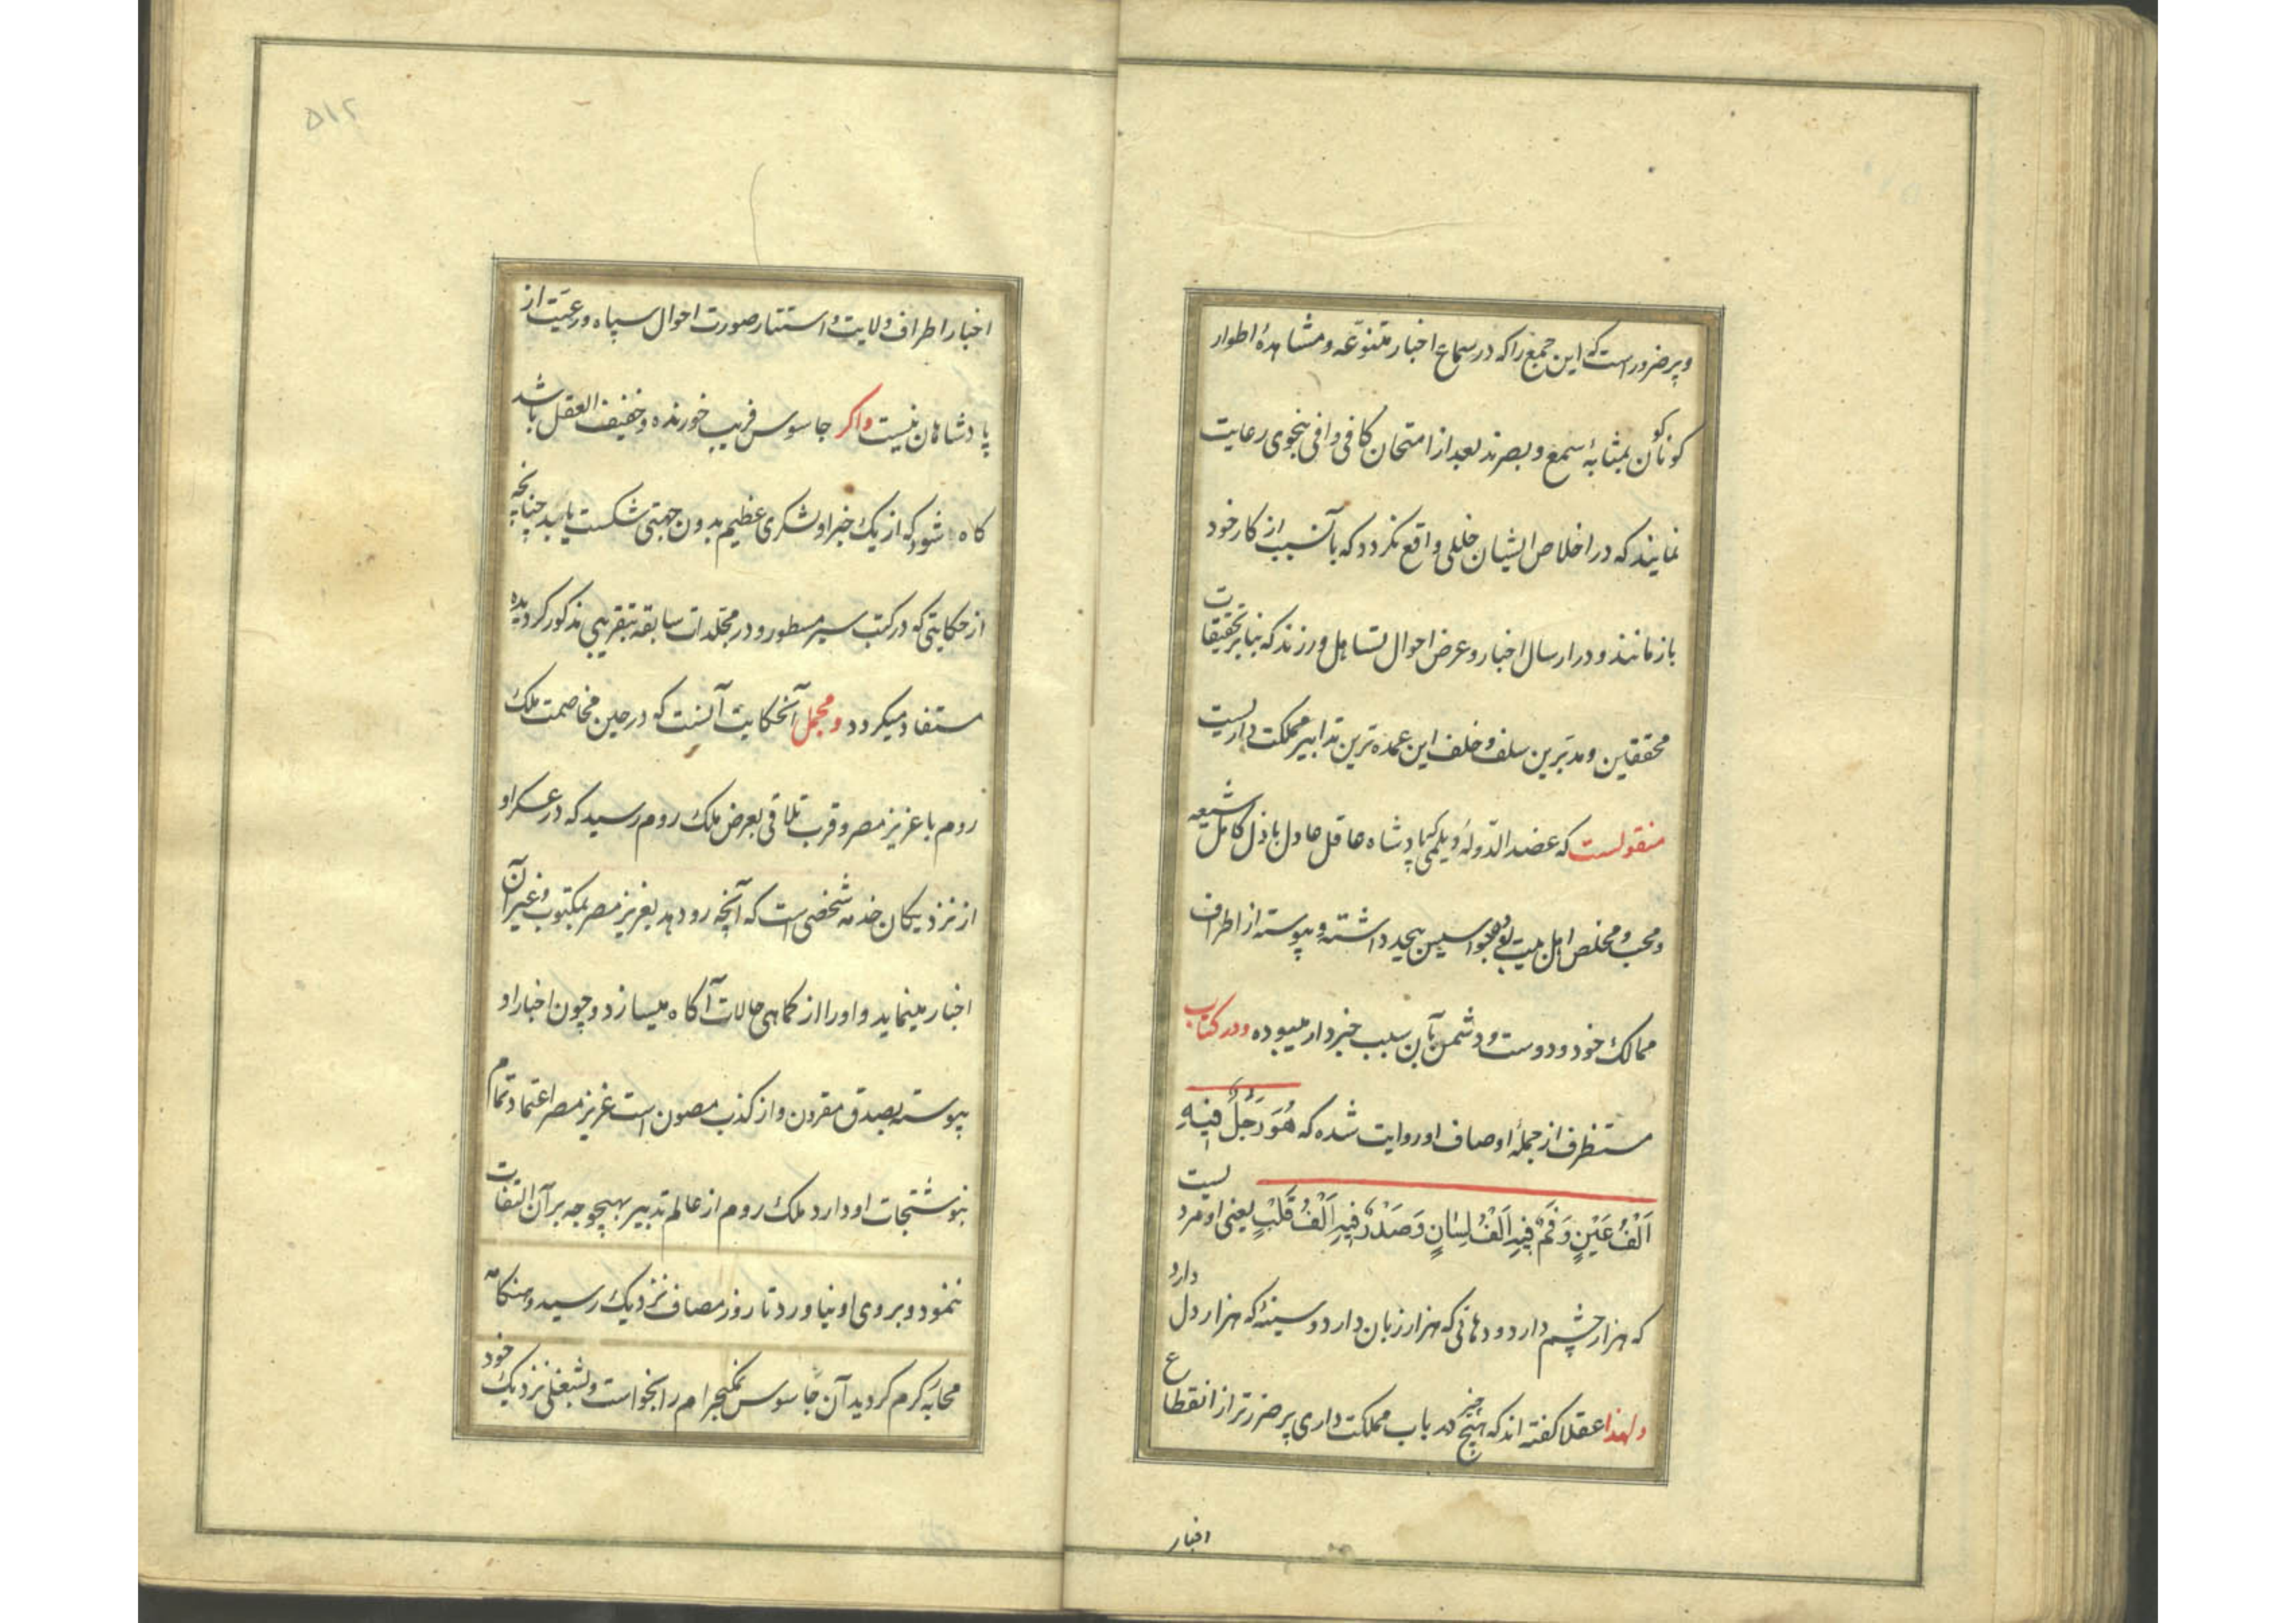 و پر ضرور است که این جمع را که در سماع اخبار متنوّعه و مشاهدهٔ اطوار
کوناکون بمثابهٔ سمع و بصرند بعد از امتحان کافی و وافی بنحوی رعایت
نمایند که در اخلاص ایشان خللی واقع نکردد که بآنسبب از کار خود
باز مانند و در ارسال اخبار و عرض احوال تساهل ورزند که بنابر تحقیقات
محققین و مدبّرین سلف و خلف این عمده ترین تدابیر مملکت داریست
منقولست که عضد الدّولهٔ دیلمی که پادشاه عاقل عادل باذل کامل شیعه
و محب و مخلص اهل بیت بوده جواسیس بیحد داشته و پیوسته از اطراف
ممالک خود و دوست و دشمن بآن سبب خبردار میبوده و در کتاب
مستظرف از جملهٔ اوصاف او روایت شده که هُوَ رَجُلٌ فیهِ
اَلْفُ عَیْنٍ وَ فَمٌ فیهِ اَلْفُ لِسٰانٍ وَ صَدْرٌ فیهِ اَلْفُ قَلْبٍ یعنی او مردیست
که هزار چشم دارد و دهانی که هزار زبان دارد و سینهٔ که هزار دل دارد
و لهذا عقلا کفته اند که هیچ چیز در باب مملکت داری پر ضررتر از انقطاع
اخبار
۵۱۲
اخبار اطراف ولایت و استتار صورت احوال سپاه و رعیّت از
پادشاهان نیست و اکر جاسوس فریب خورنده و خفیف العقل باشد
کاه شود که از یک خبر او لشکری عظیم بدون جهتی شکست یابد چنانچه
از حکایتی که در کتب سیر مسطور و در مجلدات سابقه بتقریبی مذکور کردیده
مستفاد میکردد و مجمل آنحکایت آنست که در حین مخاصمت ملک
روم با عزیز مصر و قرب تلاقی بعرض ملک روم رسید که در عسکر او
از نزدیکان خدمه شخصی است که آنچه رو دهد بعزیز مصر بمکتوب و غیر آن
اخبار مینماید و او را از کماهی حالات آکاه میسازد و چون اخبار او
پیوسته بصدق مقرون و از کذب مصون است عزیز مصر اعتماد تمام
بنوشتجات او دارد ملک روم از عالم تدبیر بهیچوجه بر آن التفات
ننمود و بروی او نیاورد تا روز مصاف نزدیک رسید و هنکامه
محاربه کرم کردید آن جاسوس نمکبحرام را بخواست و بشغلی نزدیک خود